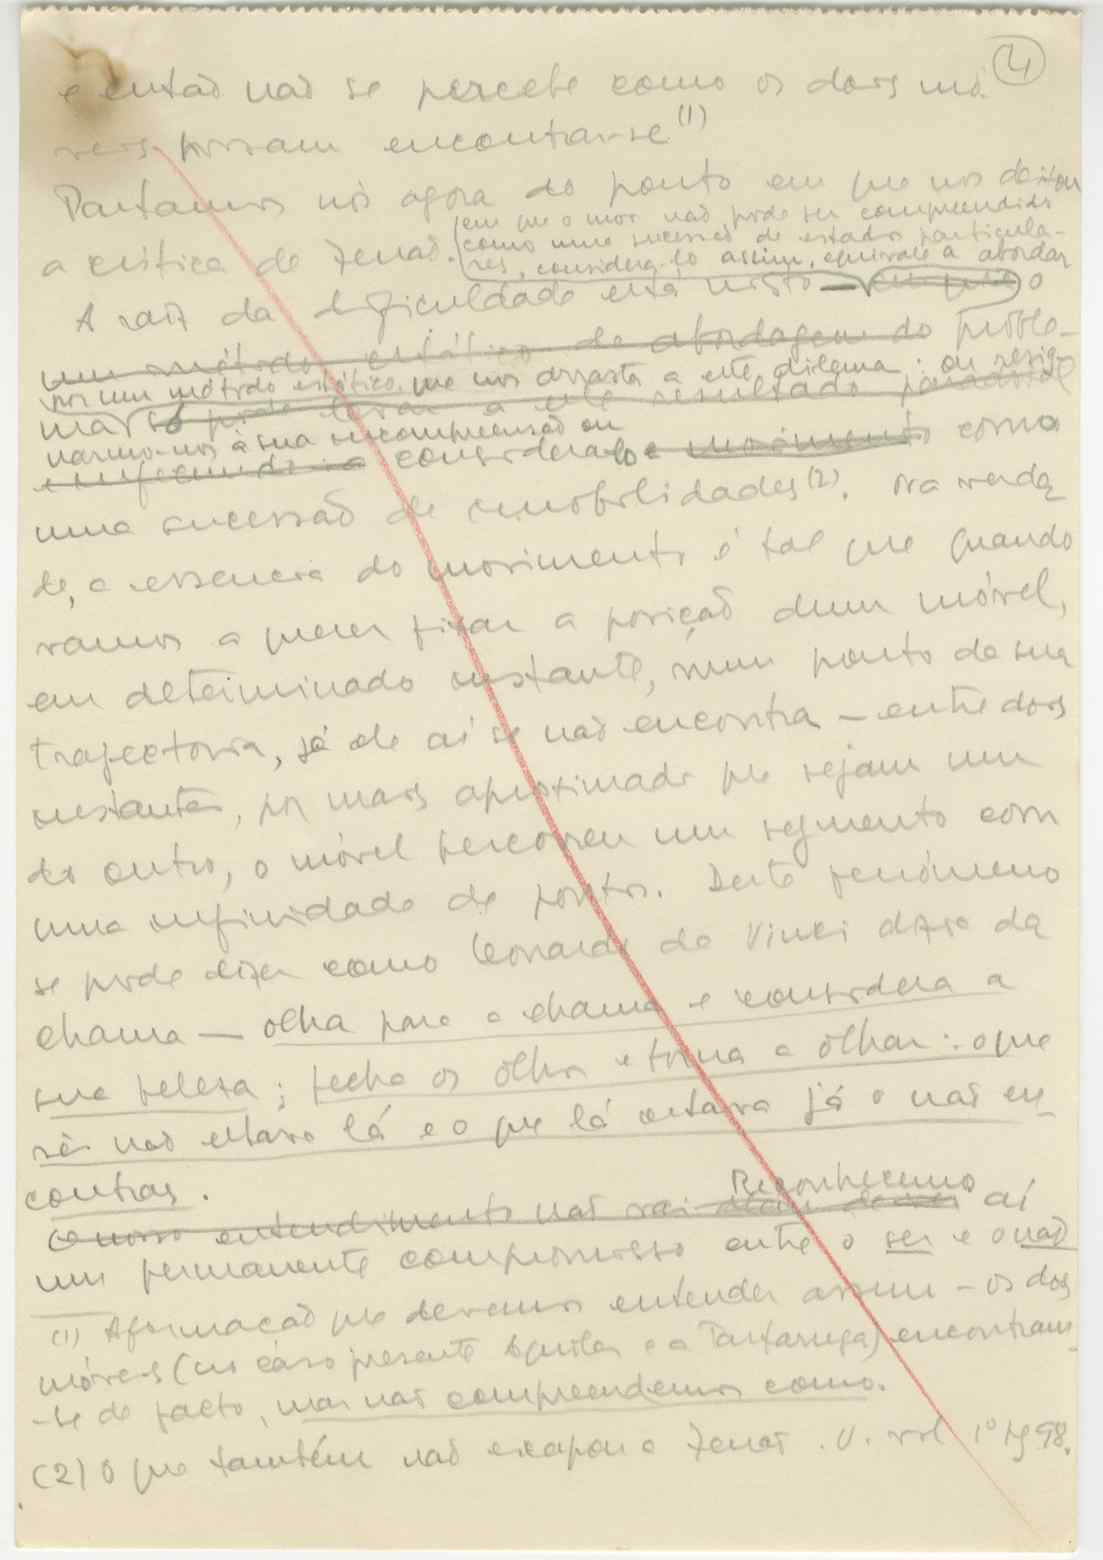 4
e então não se percebe como os dois mó-
veis possam encontrar-se (1)
Partamos nós agora do ponto em que nos deixou
a crítica de Zenão.
em que o mov. não pode ser compreendido
como uma sucessão de estados particula-
res, considerá-lo assim, equivale a abordar
A raiz da dificuldade está nisto — em que o
um método estático de abordagem do proble-
por um método estático que nos arrasta a este dilema: ou resig-
ma só pode levar a este resultado paradoxal
narmo-nos à sua incompreensão ou
considerá-lo o movimento como
uma sucessão de imobilidades (2). Na verda
de, a essencia do movimento é tal que quando
vamos a querer fixar a posição dum móvel,
em determinado instante, num ponto da sua
trajectoria, já ele aí se não encontra — entre dois
instantes, por mais aproximados que sejam um
do outro, o móvel percorreu um segmento com
uma infinidade de pontos. Deste fenómeno
se pode dizer como Leonardo da Vinci dizia da
chama — olha para a chama e considera a
sua beleza; fecha os olhos e torna a olhar: o que
vês não estava lá e o que lá estava já o não en-
contras.
Reconhecemos
O nosso entendimento não vai aí
um permanente compromisso entre o ser e o não
(1) Afirmação que devemos entender assim — os dois
móveis (no caso presente Aquiles e a Tartaruga) encontram-
-se de facto, mas não compreendemos como.
(2) O que também não escapou a Zenão. V. vol 1º pg 98.